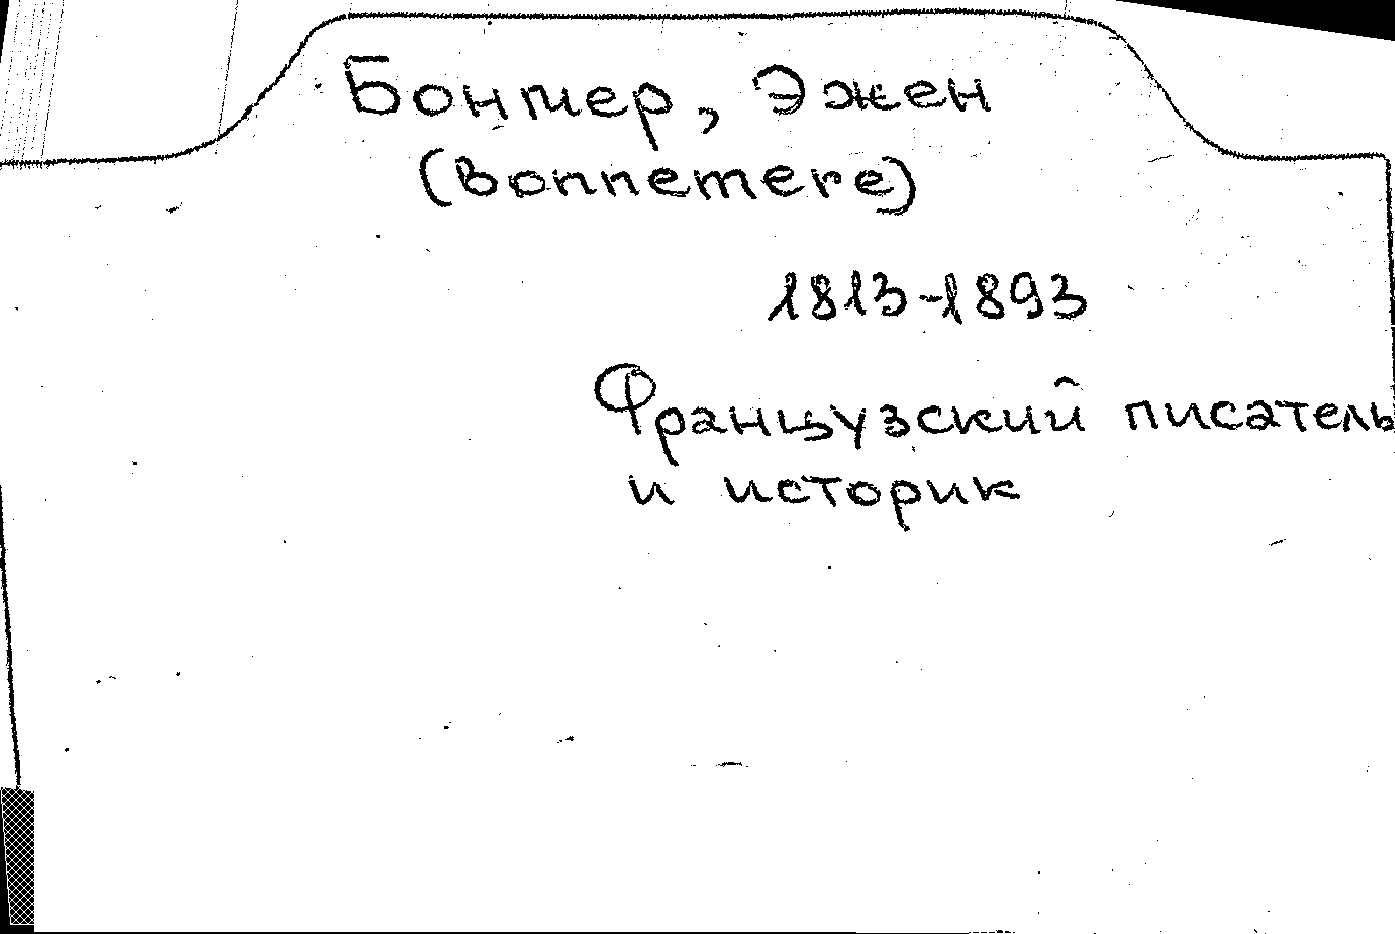 Бонмер, Эжен
(Bonnemere)
1813-1893
Французский писатель
и историк